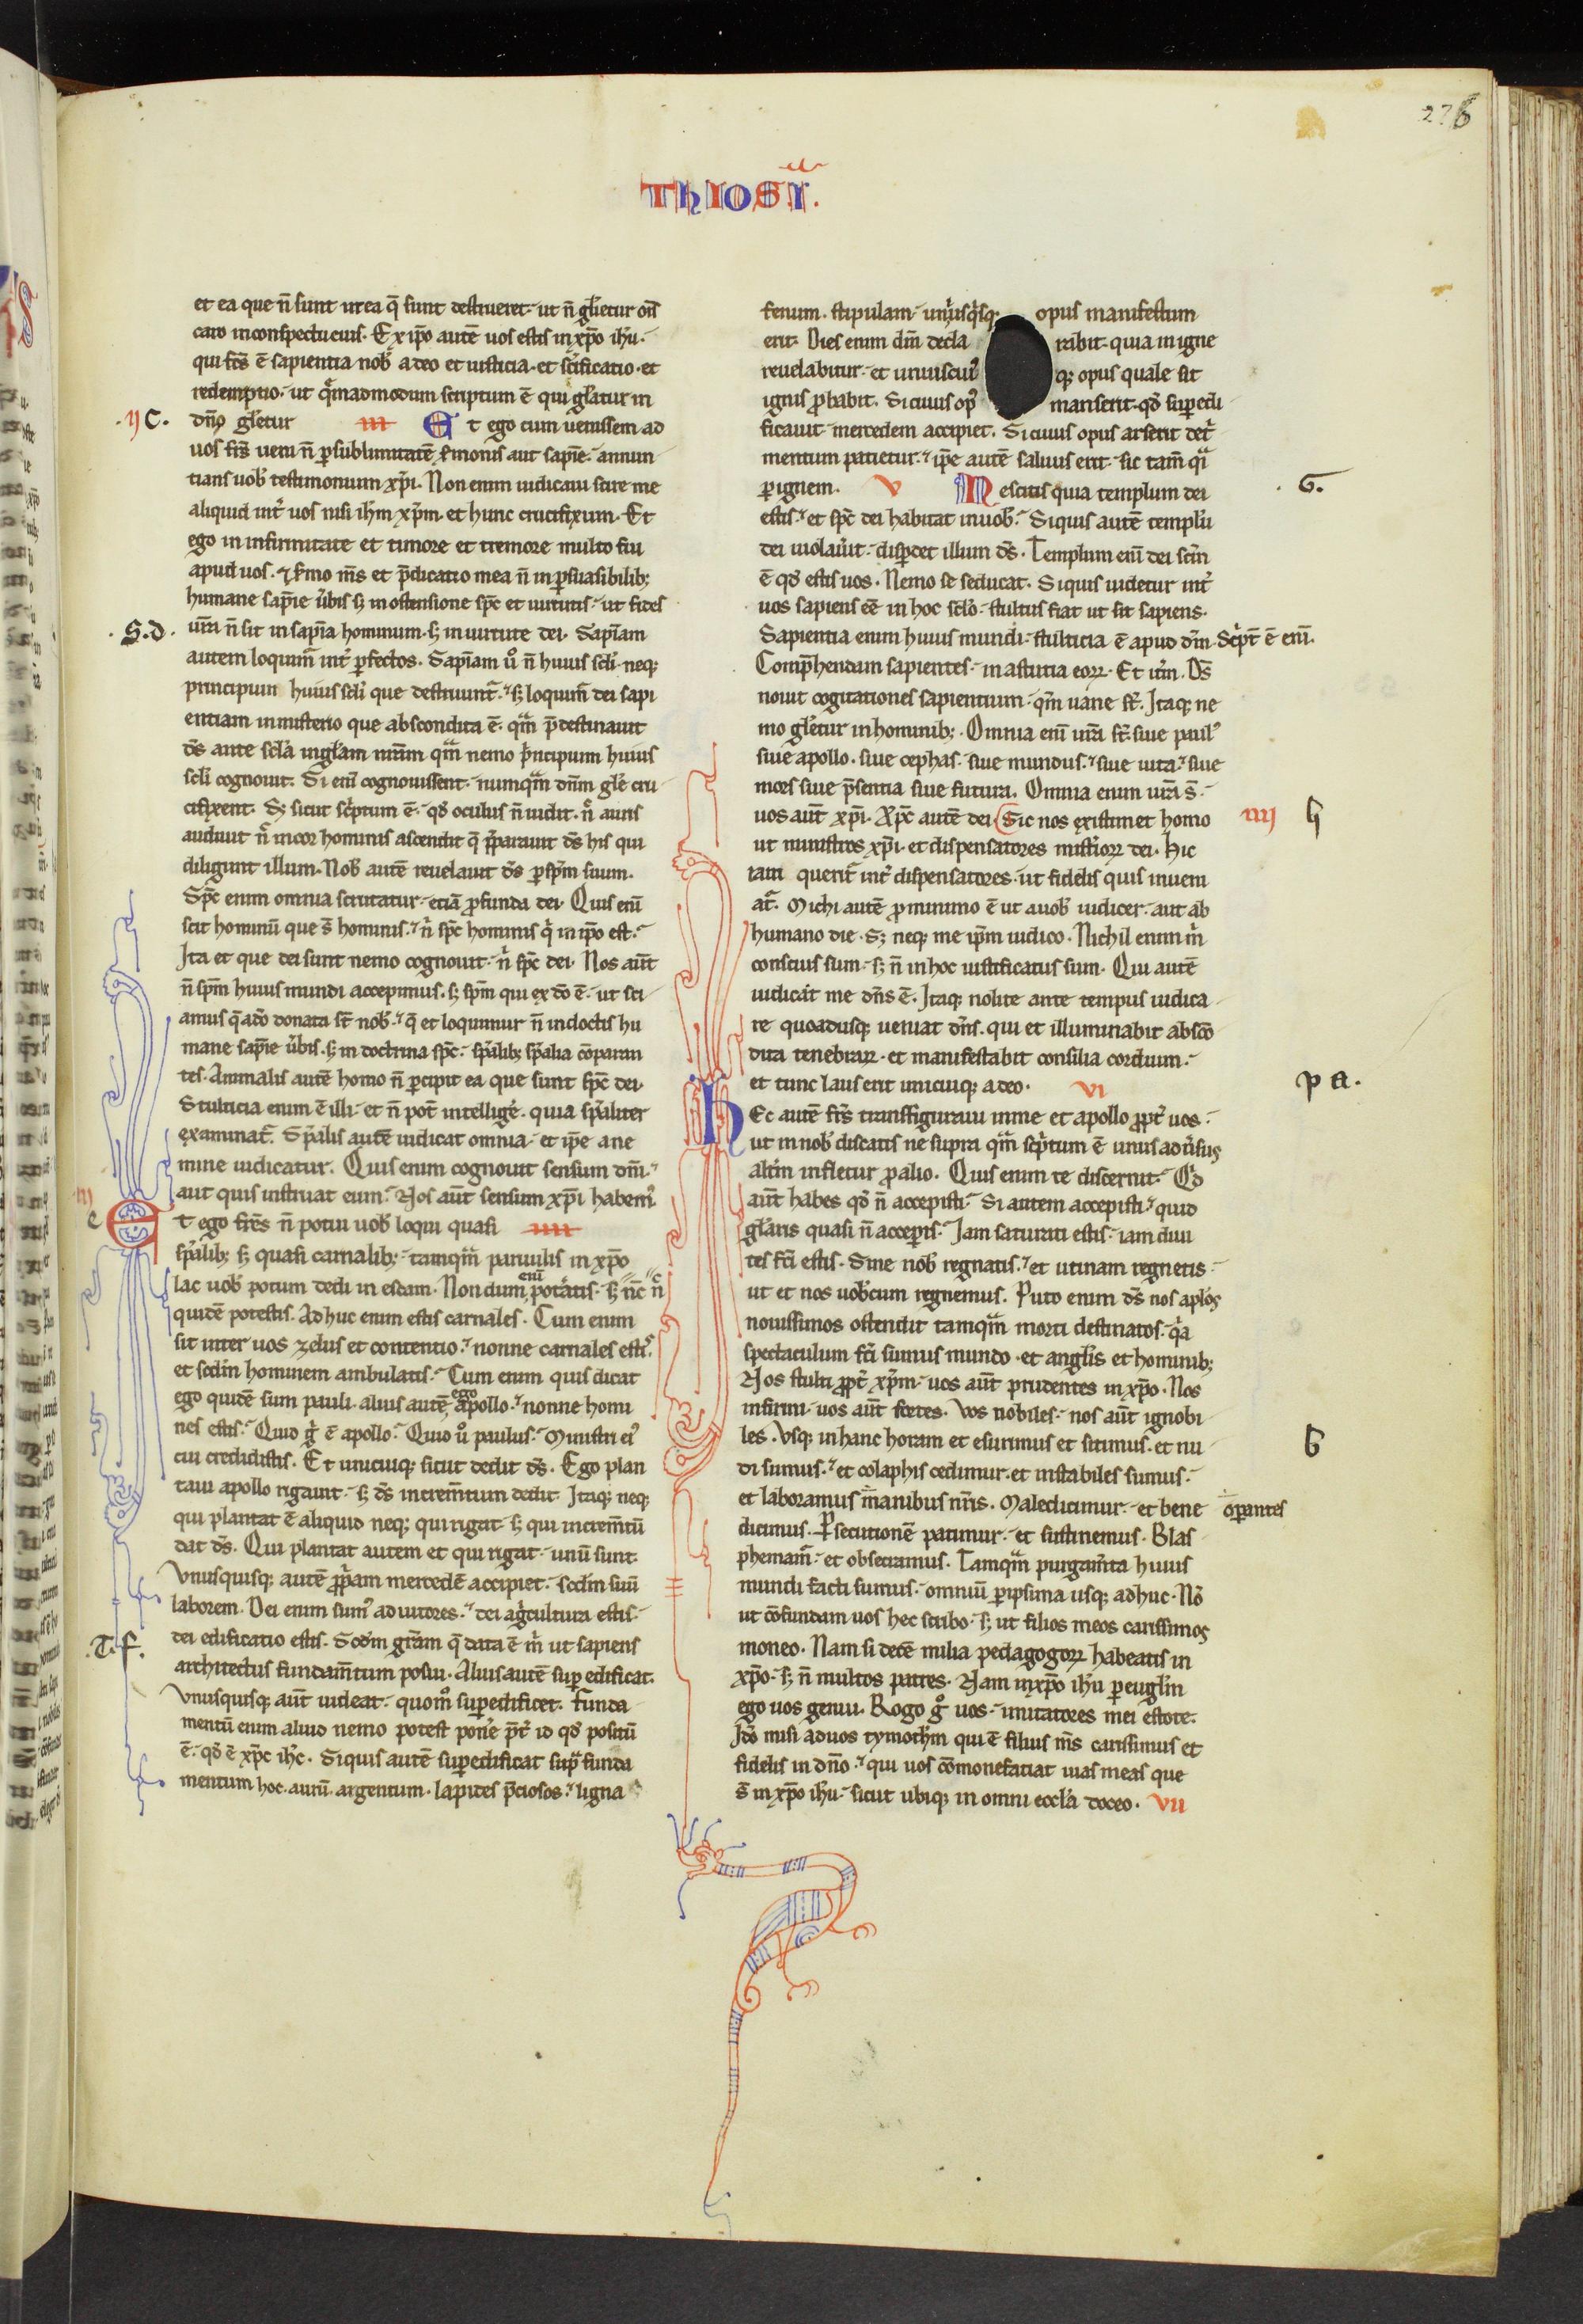 276
THIOS I.
et ea que n̄ sunt ut ea q̄ sunt destrueret. ut n̄ gl̄ietur om̄s
caro in conspectu eius. Ex ip̄o autē uos estis in xp̄o ihū.
qui fc̄s ē sapientia nob̄ a deo et iusticia. et sc̄ificatio. et
redemptio. ut qͣmadmodum scriptum ē qui gl̄atur in
.ij C. dn̄o gl̄etur iii Et ego cum uenissem ad
uos fr̄s ueni n̄ ꝑ sublimitatē s̄monis aut sapīe. annun
tians uob̄ testimonium xp̄i. Non enim iudicaui scire me
aliquid int̄ uos nisi ihm̄ xp̄m. et hunc crucifixum. Et
ego in infirmitate et timore et tremore multo fui
apud uos. ⁊ s̄mo m̄s et p̄dicatio mea n̄ in ꝑsuasibilib;
humane sapīe ūbis s; in ostensione sp̄c et uirtutis. ut fides
.S.d. ur̄a n̄ sit in sapīa hominum. s; in uirtute dei. Sapīam
autem loquim̄ int̄ ꝑfectos. Sapīam uͦ n̄ huius sc̄li. neq;
principum huius sc̄li que destruunt̄. s; loquim̄ dei sapi
entiam in misterio que abscondita ē. qͣm p̄destinauit
ds̄ ante scl̄a in gl̄am nr̄am qͣm nemo pͥncipum huius
sc̄li cognouit. Si enī cognouissent. numqͣm dn̄m gl̄e cru
cifixent. S; sicut scͥptum ē. qd̄ oculus n̄ uidit. nͨ auris
audiuit nͨ in cor hominis ascendit q̄ p̄parauit ds̄ his qui
diligunt illum. Nob̄ autē reuelauit ds̄ ꝑ sp̄m suum.
Sp̄c enim omnia scrutatur. etiā ꝓfunda dei. Quis enī
scit hominū que s̄ hominis. nͥ sp̄c hominis qͥ in ip̄o est.
Ita et que dei sunt nemo cognouit. nͥ sp̄c dei. Nos aūt
n̄ sp̄m huius mundi accepimus. s; sp̄m qui ex dō ē. ut sci
amus q̄ a dō donata st̄ nob̄. q̄ et loquimur n̄ in doctis hu
mane sapīe ūbis. s; in doctrina sp̄c. sp̄alib; sp̄alia cōparan
tes. Animalis autē homo n̄ ꝑcipit ea que sunt sp̄c dei.
Stulticia enim ē illi. et n̄ pot̄ intelligē. quia sp̄aliter
examinat̄. Sp̄alis autē iudicat omnia. et ip̄e a ne
mine iudicatur. Quis enim cognouit sensum dn̄i.
aut quis instruat eum. Nos aūt sensum xp̄i habem᷒.
iij
e Et ego fr̄es n̄ potui uob̄ loqui quasi iiii
sp̄alib; s; quasi carnalib;. tamqͣm paruulis in xp̄o
lac uob̄ potum dedi n̄ escam. Nondum enī potatis. s; nc̄ n̄
quidē potestis. Adhuc enim estis carnales. Cum enim
sit inter uos zelus et contentio. nonne carnales estis.
et scd̄m hominem ambulatis. Cum enim quis dicat
ego quidē sum pauli. alius autē ego apollo. nonne homi
nes estis. Quid gͥ ē apollo. Quid uͦ paulus. Ministri ei᷒
cui credidistis. Et unicuiq; sicut dedit ds̄. Ego plan
taui apollo rigauit. s; ds̄ increm̄tum dedit. Itaq; neq;
qui plantat ē aliquid neq; qui rigat. s; qui increm̄tū
dat ds̄. Qui plantat autem et qui rigat. unū sunt.
Vnusquisq; autē ꝓp̄am mercedē accipiet. scd̄m suū
laborem. Dei enim sum᷒ adiutores. dei agͥcultura estis.
.T.f. dei edificatio estis. Scd̄m gr̄am q̄ data ē m̄ ut sapiens
architectus fundam̄tum posui. Alius autē suꝑ edificat.
Vnusquisq; aūt uideat. quomͦ suꝑedificet. Funda
mentū enim aliud nemo potest ponē p̄t id qd̄ positū
ē. qd̄ ē xp̄c ihc̄. Siquis autē suꝑedificat supͣ funda
mentum hoc. aurū. argentum. lapides p̄ciosos. ligna
fenum. stipulam. unͥusqͥsq; opus manifestum
erit. Dies enim dn̄i decla rabit. quia in igne
reuelabitur. et uniuscui᷒ q; opus quale sit
ignis ꝓbabit. Si cuius op᷒ manserit. qd̄ suꝑedi
ficauit. mercedem accipiet. Si cuius opus arserit det̄
mentum patietur. ip̄e autē saluus erit. sic tam̄ qͣi
ꝑ ignem. V Nescitis quia templum dei G.
estis. et sp̄c dei habitat in uob̄. Siquis autē templū
dei uiolauīt. disꝑdet illum ds̄. Templum enī dei sc̄m
ē qd̄ estis uos. Nemo se seducat. Siquis uidetur int̄
uos sapiens eē in hoc scl̄o. stultus fiat ut sit sapiens.
Sapientia enim huius mundi. stulticia ē apud dm̄. Scͥpt̄ ē enī.
Comp̄hendam sapientes. in astutia eoꝝ. Et it̄m. Ds̄
nouit cogitationes sapientium. qm̄ uane st̄. Itaq; ne
mo gl̄etur in hominib;. Omnia enī ur̄a st̄. siue paul᷒
siue apollo. siue cephas. siue mundus. siue uita. siue
mors siue p̄sentia siue futura. Omnia enim ur̄a s̄.
uos aūt xp̄i. Xp̄c autē dei. Sic nos existimet homo iiij h
ut ministros xp̄i. et dispensatores mistīoꝝ dei. Hic
iam querit̄ int̄ dispensatores. ut fidelis quis inueni
at̄. Michi autē ꝓ minimo ē ut a uob̄ iudicer. aut ab
humano die. S; neq; me ip̄m iudico. Nichil enim m̄
conscius sum. s; n̄ in hoc iustificatus sum. Qui autē
iudicat me dn̄s ē. Itaq; nolite ante tempus iudica
re quoadusq; ueniat dn̄s. qui et illuminabit abscō
dita tenebraꝝ. et manifestabit consilia cordium.
et tunc laus erit unicuiq; a deo. VI p a.
Hec autē fr̄s transfiguraui in me et apollo ꝓpt̄ uos.
ut in nob̄ discatis ne supra qͣm scͥptum ē unus aduīsus
alt̄m infletur ꝓ alio. Quis enim te discernit. Qd̄
aūt habes qd̄ n̄ accepisti. Si autem accepisti. quid
gl̄aris quasi n̄ acceꝑis. Iam saturati estis. iam diui
tes fc̄i estis. Sine nob̄ regnatis. et utinam regnetis.
ut et nos uob̄cum regnemus. Puto enim ds̄ nos apl̄os
nouissimos ostendit tamqͣm morti destinatos. qͥa
spectaculum fc̄i sumus mundo. et angl̄is et hominib;
Nos stulti ꝓpt̄ xp̄m. uos aūt prudentes in xp̄o. Nos
infirmi. uos aūt fortes. Vos nobiles. nos aūt ignobi
les. Vsq; in hanc horam et esurimus et sitimus. et nu b
di sumus. et colaphis cedimur. et instabiles sumus.
et laboramus manibus nr̄is. Maledicimur. et bene oꝑantes
dicimus. Ꝑsecutionē patimur. et sustinemus. Blas
phemam̄. et obsecramus. Tamqͣm purgam̄ta huius
mundi facti sumus. omniū ꝑipsima usq; adhuc. Nō
ut cōfundam uos hec scribo. s; ut filios meos carissimos
moneo. Nam si decē milia pedagogoꝝ habeatis in
xp̄o. s; n̄ multos patres. Nam in xp̄o ihū ꝑ euglm̄
ego uos genui. Rogo gͦ uos. imitatores mei estote.
Idō misi ad uos tymothm̄ qui ē filius m̄s carissimus et
fidelis in dn̄o. qui uos cōmonefaciat uias meas que
s̄ in xp̄o ihū. sicut ubiq; in omni eccl̄a doceo. VII